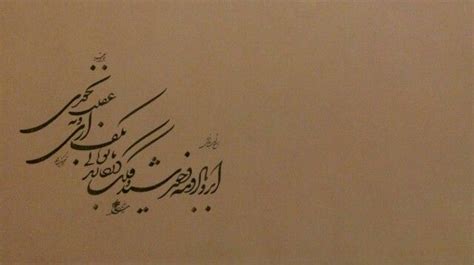 ابر و باد و مه و خورشید و فلک در کارند
تا تو نانی بکف آری و به غفلت نخوری